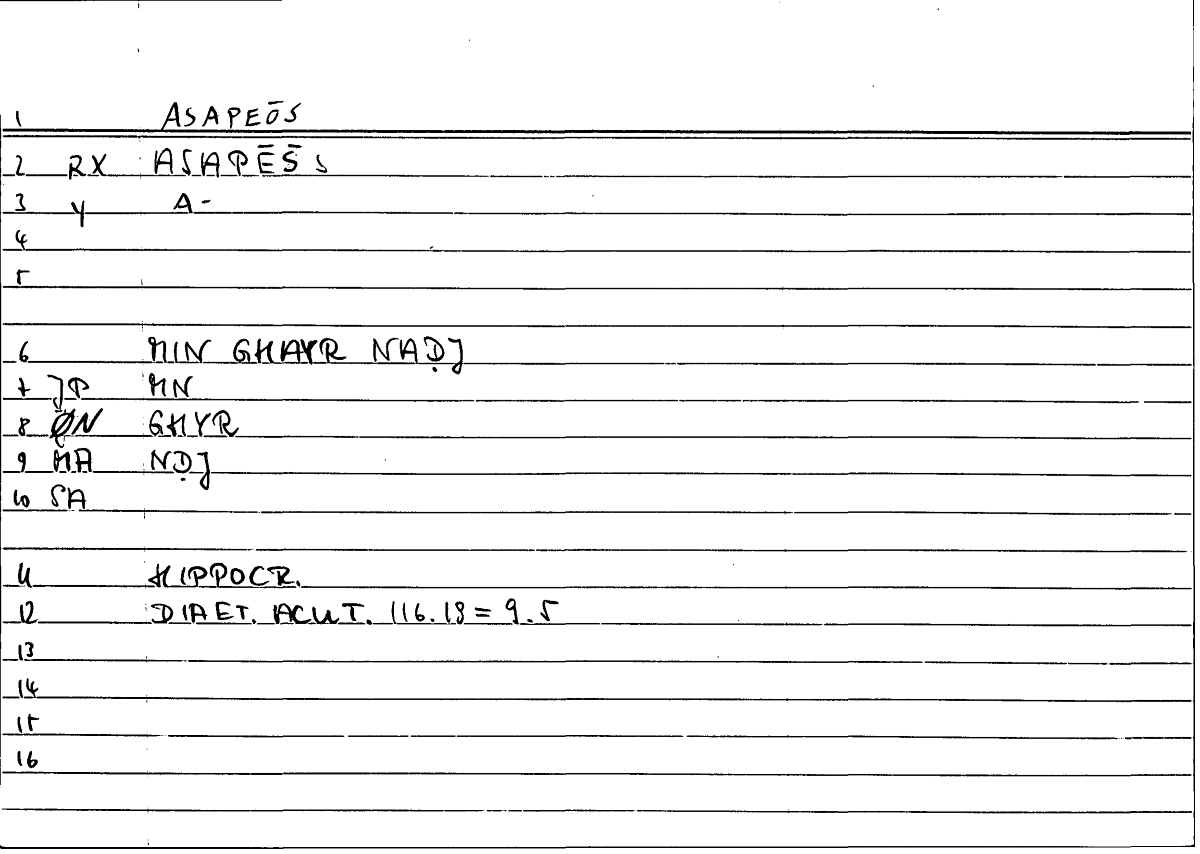 1 ASAPEŌS
2 RX ASAPĒS̄ S
3 Y A-
4
5
6 MIN GHAYR NAḌJ
7 JP MN
8 ØN GHYR
9 MA NḌJ
10 SA
11 HIPPOCR.
12 DIAET. ACUT. 116.18 = 9.5
13
14
15
16